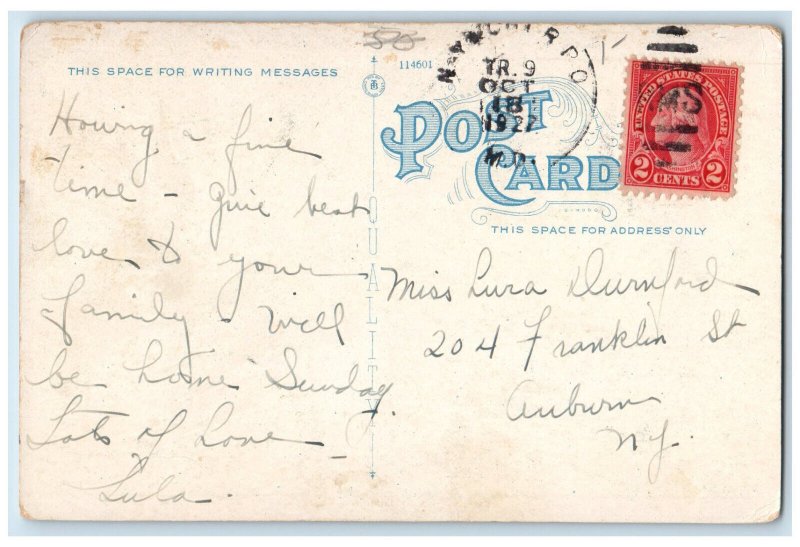 50
THIS SPACE FOR WRITING MESSAGES
114601
TR. 9
OCT
18
1927
M.D.
RMS
UNITED STATES POSTAGE
2 CENTS 2
POST
CARD
THIS SPACE FOR ADDRESS ONLY
QUALITY
Having a fine
time - Give best
love to your
family - Will
be home Sunday.
Lots of Love -
Lula.
Miss Lura Durnford
204 Franklin St
Auburn
N.Y.